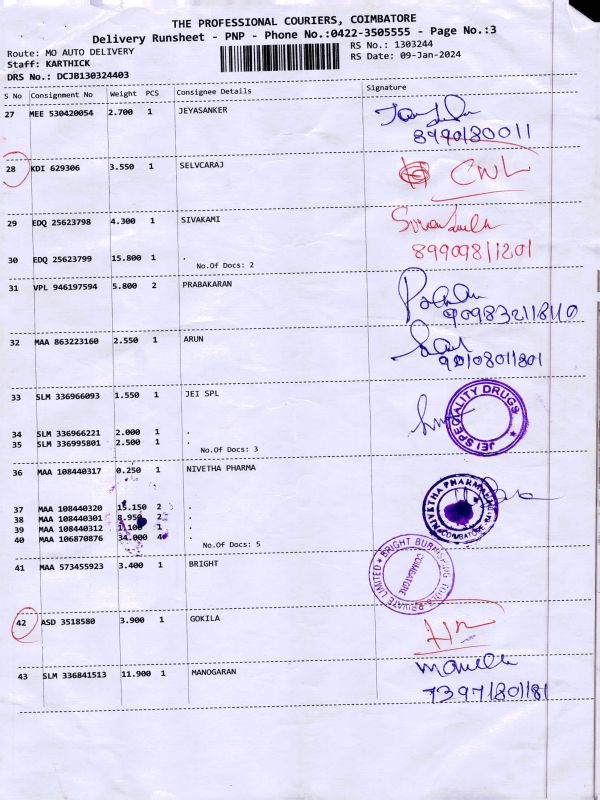 THE PROFESSIONAL COURIERS, COIMBATORE
Delivery Runsheet - PNP - Phone No.:0422-3505555 - Page No.:3
Route: MO AUTO DELIVERY
RS No.: 1303244
Staff: KARTHICK
RS Date: 09-Jan-2024
DRS No.: DCJB130324403
S No Consignment No Weight PCS Consignee Details Signature
27 MEE 530420054 2.700 1 JEYASANKER
8990180011
28 KDI 629306 3.550 1 SELVCARAJ CWL
29 EDQ 25623798 4.300 1 SIVAKAMI
89909811201
30 EDQ 25623799 15.800 1 .
No.Of Docs: 2
31 VPL 946197594 5.800 2 PRABAKARAN
32 MAA 863223160 2.550 1 ARUN
33 SLM 336966093 1.550 1 JEI SPL
JEI SPECIALITY DRUGS
34 SLM 336966221 2.000 1 .
35 SLM 336995801 2.500 1 .
No.Of Docs: 3
36 MAA 108440317 0.250 1 NIVETHA PHARMA
NIVETHA PHARMA
COIMBATORE
37 MAA 108440320 15.150 2 .
38 MAA 108440301 8.950 2 .
39 MAA 108440312 1.100 1 .
40 MAA 106870876 34.000 4 .
No.Of Docs: 5
41 MAA 573455923 3.400 1 BRIGHT
PRIVATE LIMITED * BRIGHT
COIMBATORE
42 ASD 3518580 3.900 1 GOKILA
43 SLM 336841513 11.900 1 MANOGARAN